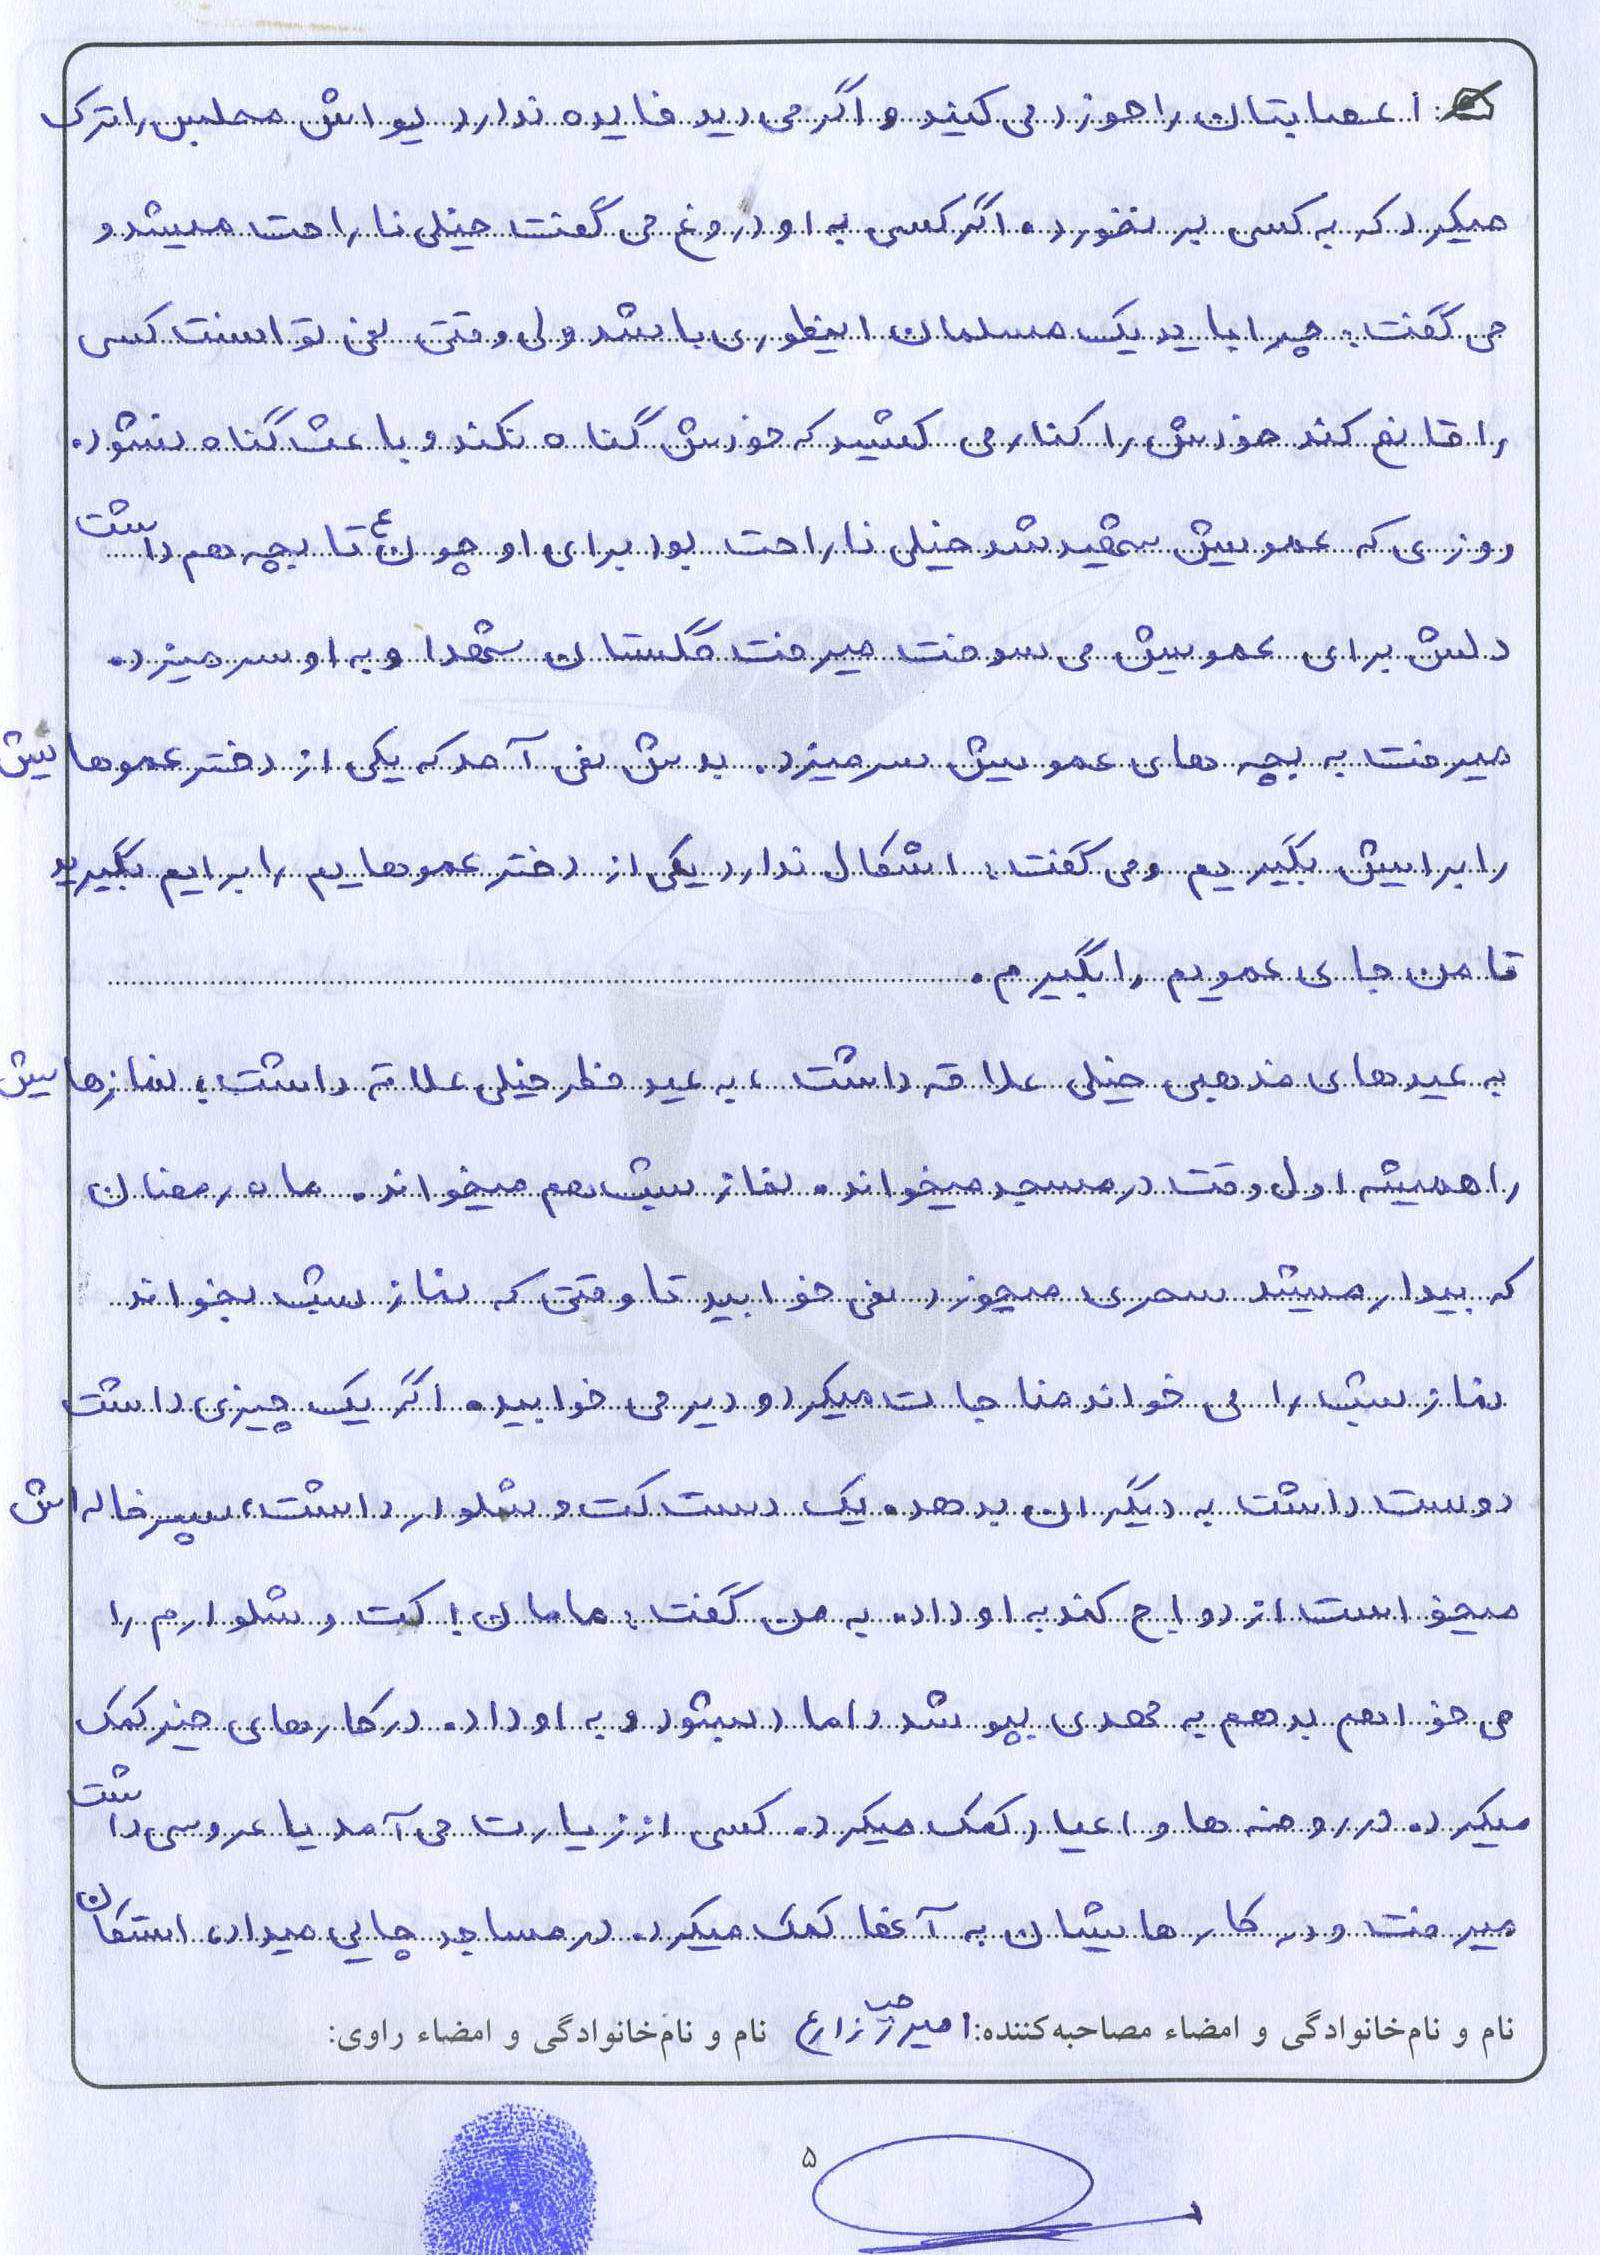 : اعصابتان را خورد می کنید و اگر می دید فایده ندارد یواش مجلس را ترک
میکرد که به کسی بر نخورد. اگر کسی به او دروغ می گفت خیلی ناراحت میشد و
می گفت: چرا باید یک مسلمان اینطوری باشد ولی وقتی نمی توانست کسی
را قانع کند خودش را کنار می کشید که خودش گناه نکند و باعث گناه نشود.
روزی که عمویش شهید شد خیلی ناراحت بود برای او چون ۴ تا بچه هم داشت
دلش برای عمویش می سوخت میرفت گلستان شهدا و به او سر میزد.
میرفت به بچه های عمویش سر میزد. بدش نمی آمد که یکی از دختر عموهایش
را برایش بگیریم و می گفت: اشکال ندارد یکی از دختر عموهایم را برایم بگیرید
تا من جای عمویم را بگیرم.
به عیدهای مذهبی خیلی علاقه داشت، به عید فطر خیلی علاقه داشت؛ نمازهایش
را همیشه اول وقت در مسجد میخواند. نماز شب هم میخواند. ماه رمضان
که بیدار میشد سحری میخورد نمی خوابید تا وقتی که نماز شب بخواند
نماز شب را می خواند مناجات میکرد و دیر می خوابید. اگر یک چیزی داشت
دوست داشت به دیگران بدهد. یک دست کت و شلوار داشت، پسر خاله اش
میخواست ازدواج کند به او داد. به من گفت: مامان! کت و شلوارم را
می خواهم بدهم به مهدی بپوشد داماد بشود و به او داد. در کارهای خیر کمک
میکرد. در روضه ها و اعیاد کمک میکرد. کسی از زیارت می آمد یا عروسی داشت
میرفت و در کارهایشان به آنها کمک میکرد. در مساجد چایی میداد، استکان
نام و نام‌خانوادگی و امضاء مصاحبه‌کننده: امیر زارع نام و نام‌خانوادگی و امضاء راوی:
۵